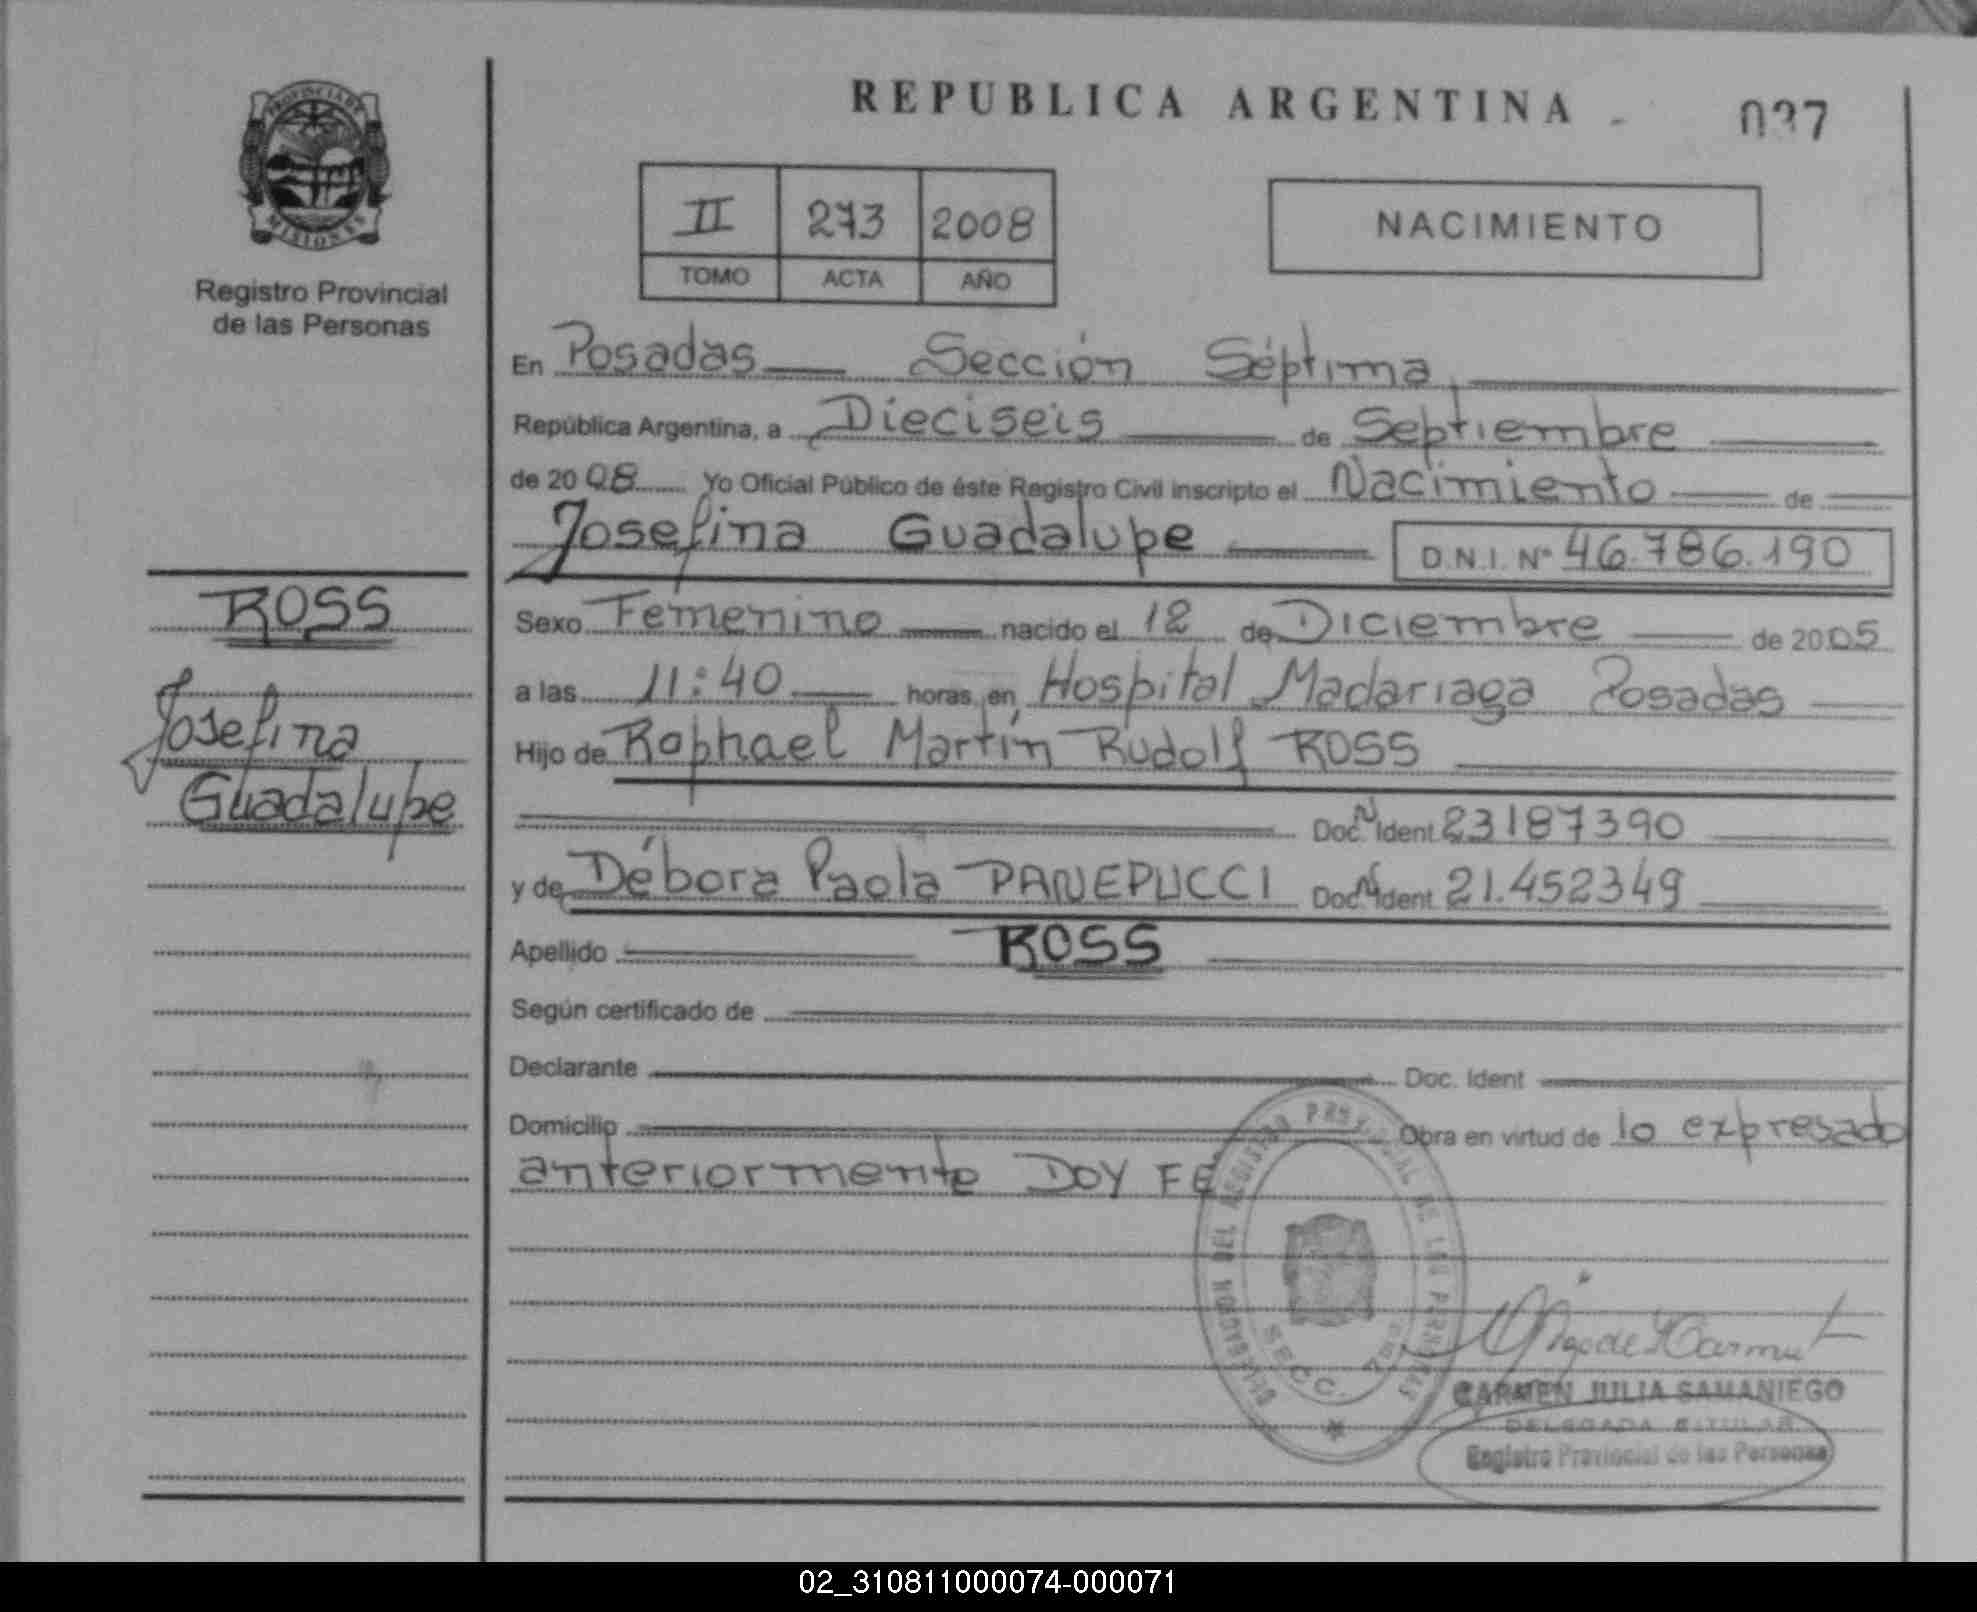 REPUBLICA ARGENTINA
037
PROVINCIA DE
MISIONES
Registro Provincial
de las Personas
II 273 2008
TOMO ACTA AÑO
NACIMIENTO
En Posadas Sección Séptima,
República Argentina, a Dieciseis de Septiembre
de 2008 Yo Oficial Público de éste Registro Civil inscripto el Nacimiento de
Josefina Guadalupe D.N.I. Nº 46.786.190
ROSS
Josefina
Guadalupe
Sexo Femenino nacido el 12 de Diciembre de 2005
a las 11:40 horas, en Hospital Madariaga Posadas
Hijo de Raphael Martín Rudolf ROSS
Doc. Nº Ident 23187390
y de Débora Paola PANEPUCCI Doc. Nº Ident 21.452349
Apellido ROSS
Según certificado de
Declarante Doc. Ident
Domicilio Obra en virtud de lo expresado
anteriormente DOY FE
DELEGACION DEL REGISTRO PROVINCIAL DE LAS PERSONAS
SECC. 7ma
CARMEN JULIA SAMANIEGO
DELEGADA TITULAR
Registro Provincial de las Personas
02_310811000074-000071